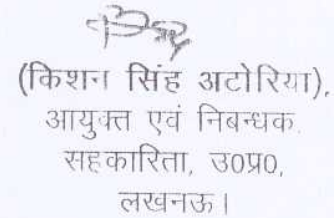 (किशन सिंह अटोरिया),
आयुक्त एवं निबन्धक,
सहकारिता, उ0प्र0,
लखनऊ।